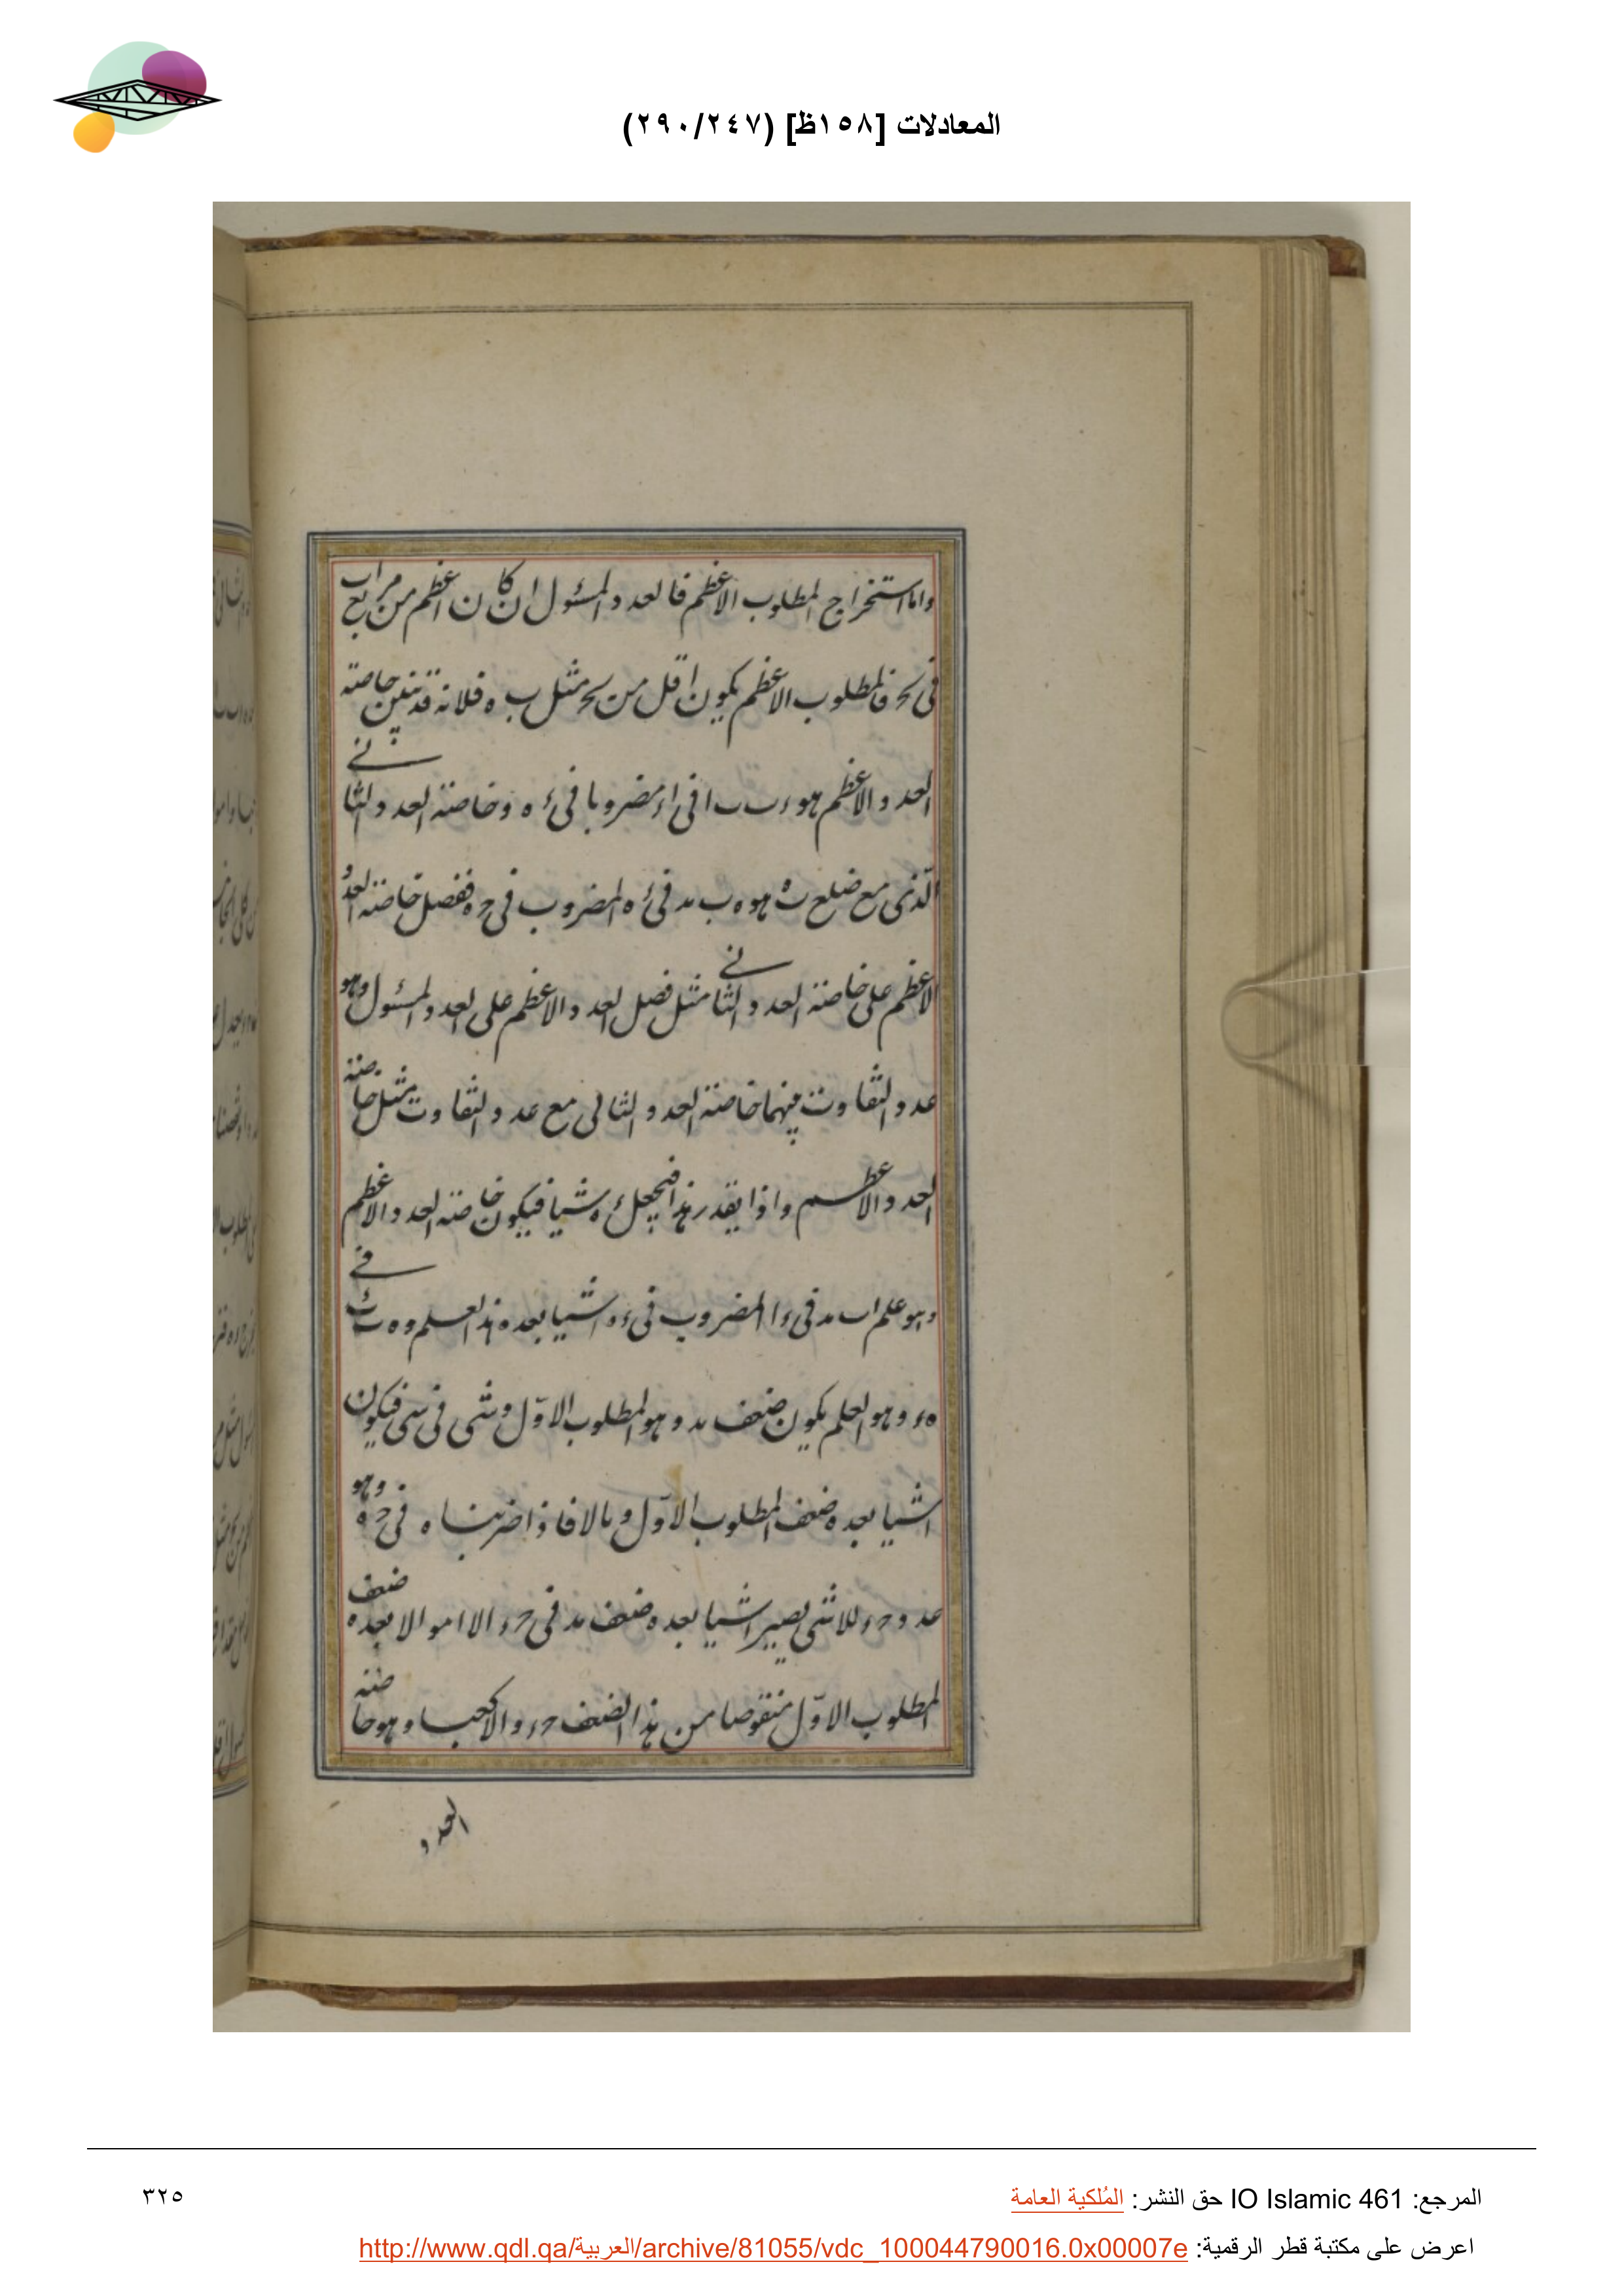 المعادلات [١٥٨ظ] (٢٩٠/٢٤٧)
واما استخراج المطلوب الاعظم فالعدد المسئول ان كان اعظم من مربع اب
فى ىحـ فالمطلوب الاعظم يكون اقل من ىحـ مثل ب ه فلانه قد تبين خاصته
العدد الاعظم هو ء ب ب ا فى ا ء مضروبا فى ء ه وخاصته العدد الثانى
الذى مع ضلع ب ه هو ه ب مد فى ء ه المضروب فى حـ ه ففضل خاصته العدد
الاعظم على خاصته العدد الثانى مثل فضل العدد الاعظم على العدد المسئول وهو
عدد التفاوت بينهما خاصته العدد الثانى مع عدد التفاوت مثل خاصته
العدد الاعظم واذا تقدر هذا فنجعل ء ه شيا فيكون خاصته العدد الاعظم
وهو علم اب مد فى ء ا المضروب فى ء ه اشيا بعده هذا العلم و ه ب فى
ه ء وهو العلم يكون ضعف مد وهو المطلوب الاوّل وشى فى شى فيكون
اشيا بعده ضعف المطلوب الاوّل ومالا فاذا ضربناه فى حـ ه وهو
عدد حـ ء للاشى يصير اشيا بعده ضعف مد فى حـ ء الا اموالا بعده ضعف
المطلوب الاوّل منقوصا من هذا الضعف حـ ء والا كعبا وهو خاصته
العدد
المرجع: IO Islamic 461 حق النشر: المُلكية العامة
٣٢٥
اعرض على مكتبة قطر الرقمية: http://www.qdl.qa/العربية/archive/81055/vdc_100044790016.0x00007e